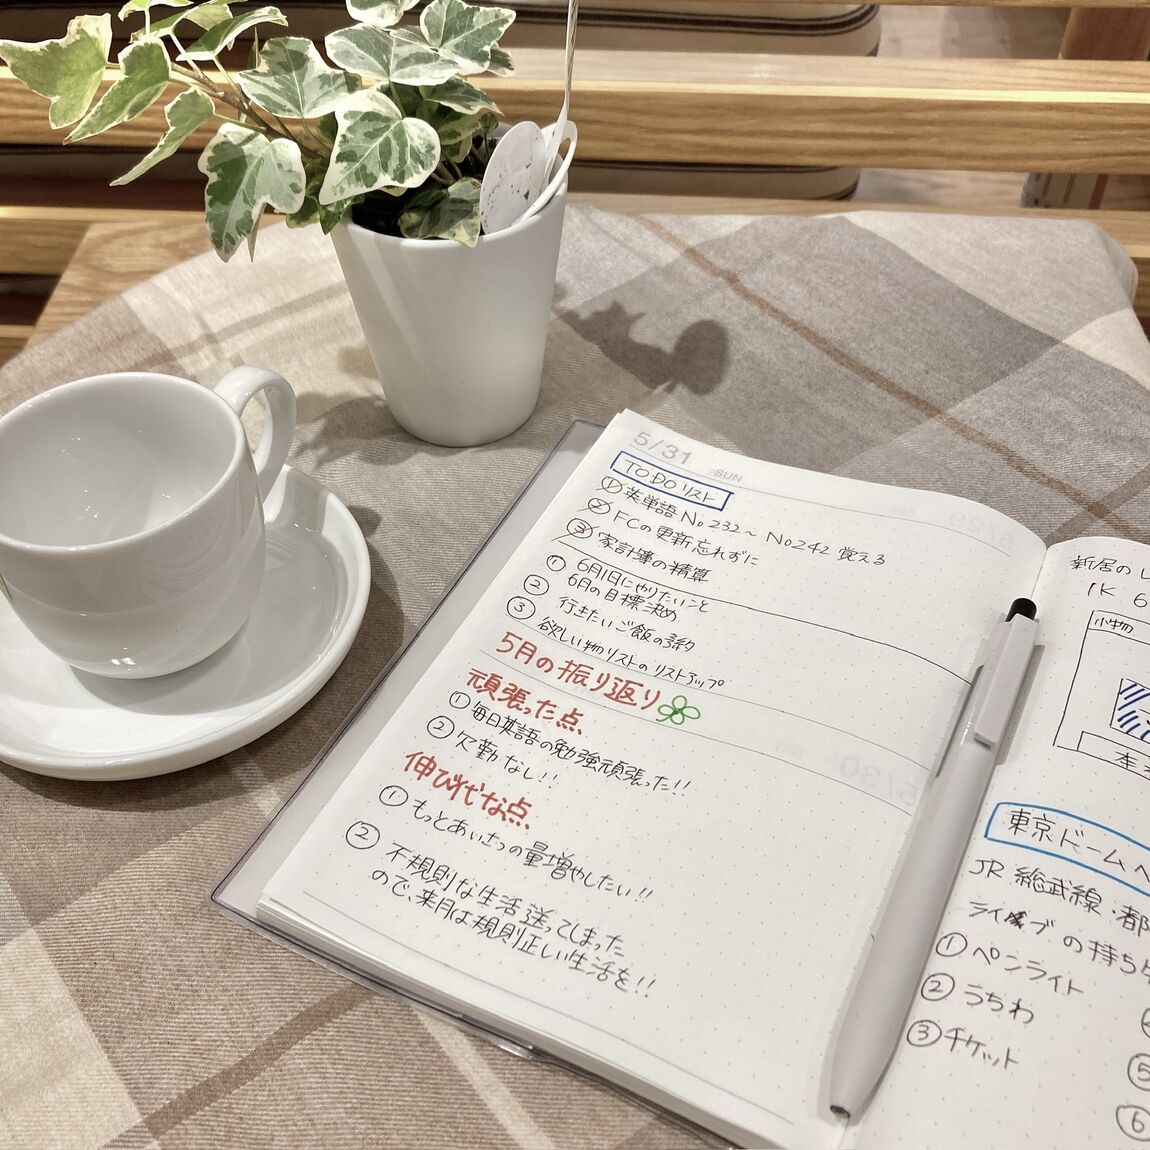 5/31 SUN
TO DO リスト
① 英単語 No 232～ No242 覚える
② FCの更新忘れずに
③ 家計簿の精算
① 6月1日にやりたいこと
6月の目標決め
② 行きたいご飯の予約
③ 欲しい物リストのリストアップ
5月の振り返り
頑張った点
① 毎日英語の勉強頑張った!!
② 欠勤なし!!
伸び代な点
① もっとあいさつの量増やしたい!!
② 不規則な生活送ってしまった
ので、来月は規則正しい生活を!!
新居の
1K 6
小物
本
東京ドームへ
JR 総武線・都
ライブの持ち
① ペンライト
② うちわ
③ チケット
⑤
⑥